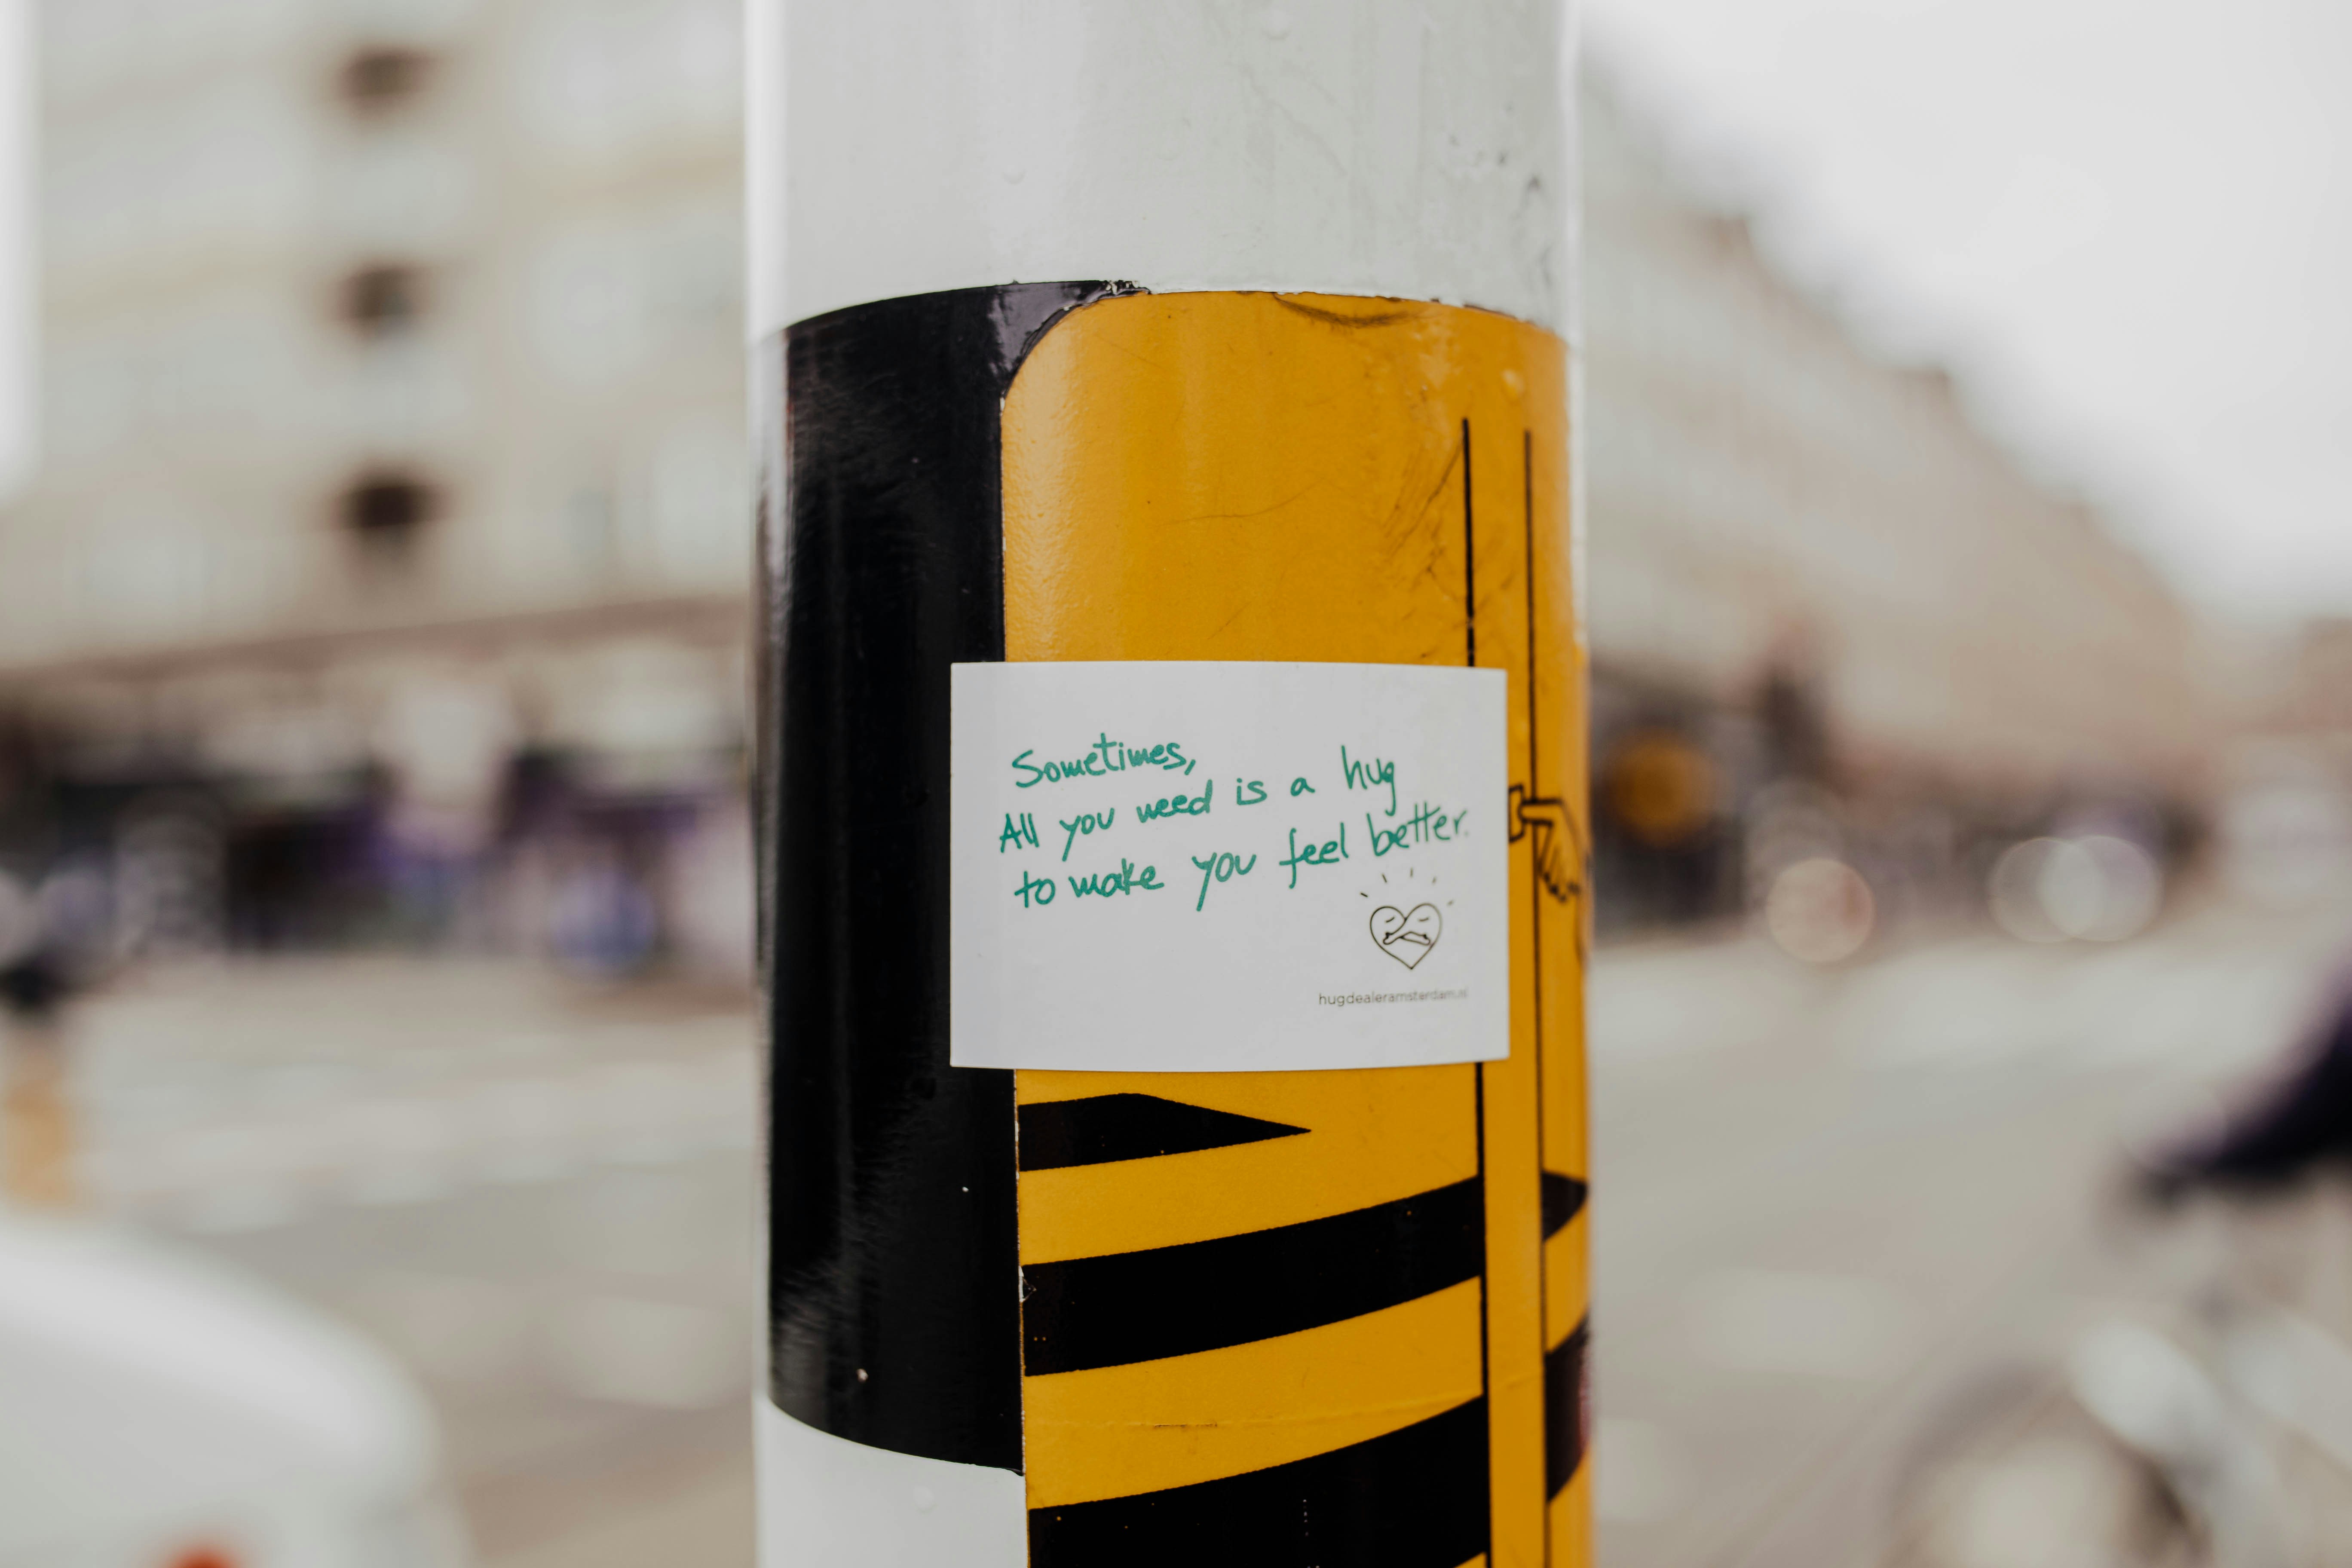 Sometimes,
All you need is a hug
to make you feel better.
hugdealeramsterdam.nl